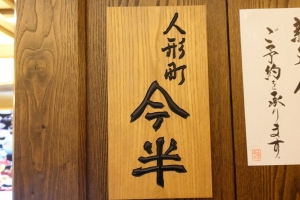 人形町
今半
ご予約を承ります。